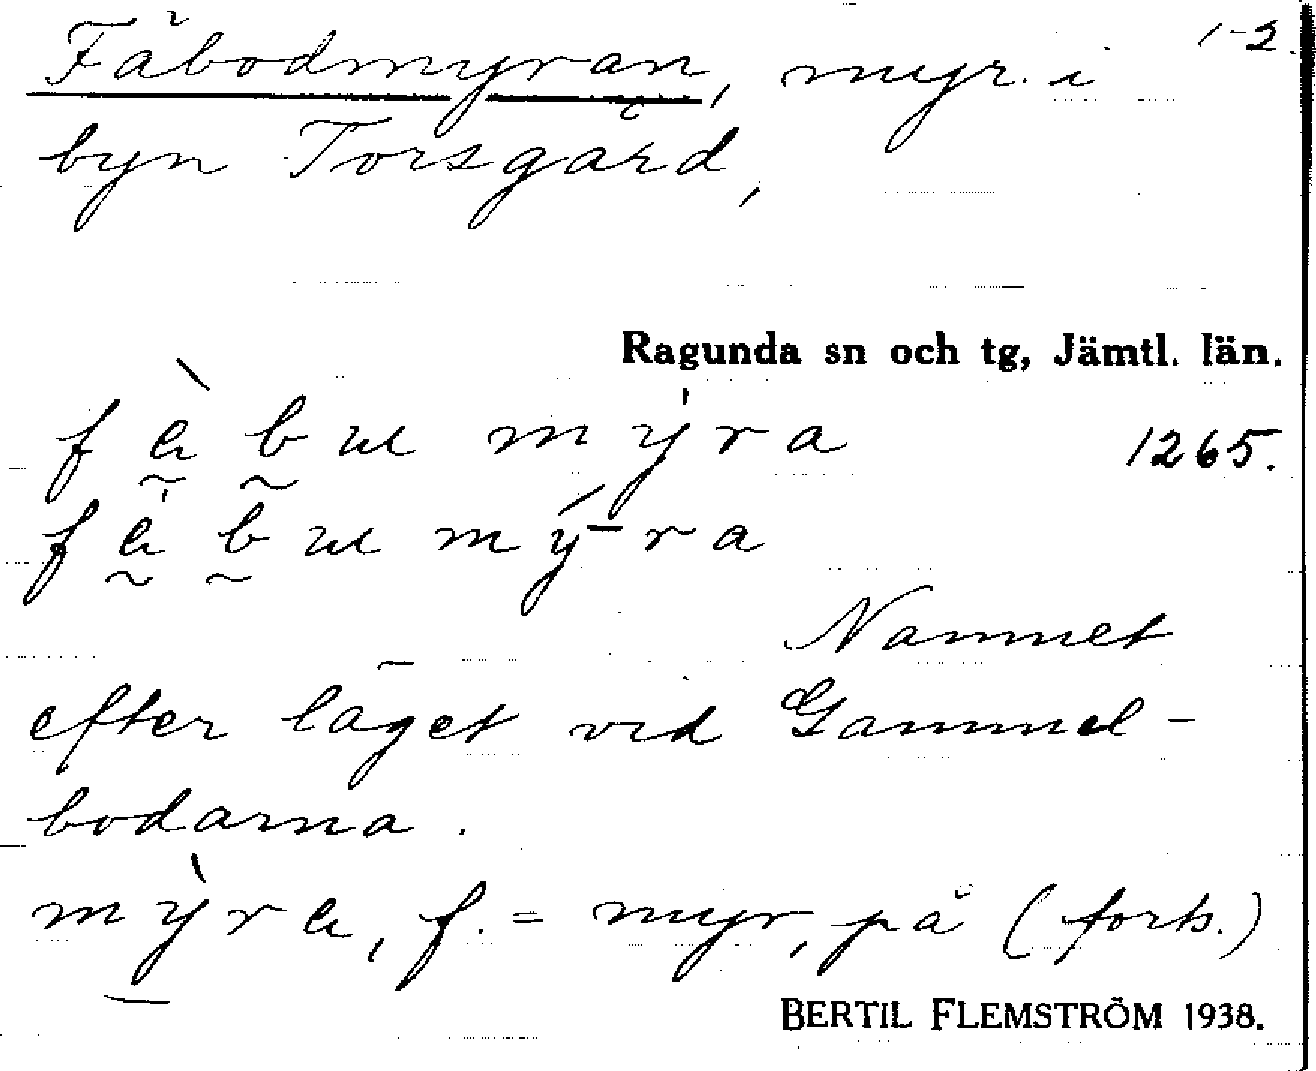 1-2.
Fäbodmyran, myr i
byn Torsgård,
Ragunda sn och tg, Jämtl. län.
1265.
Namnet
efter läget vid Gammel-
bodarna.
f. = myr, på (forts.)
BERTIL FLEMSTRÖM 1938.